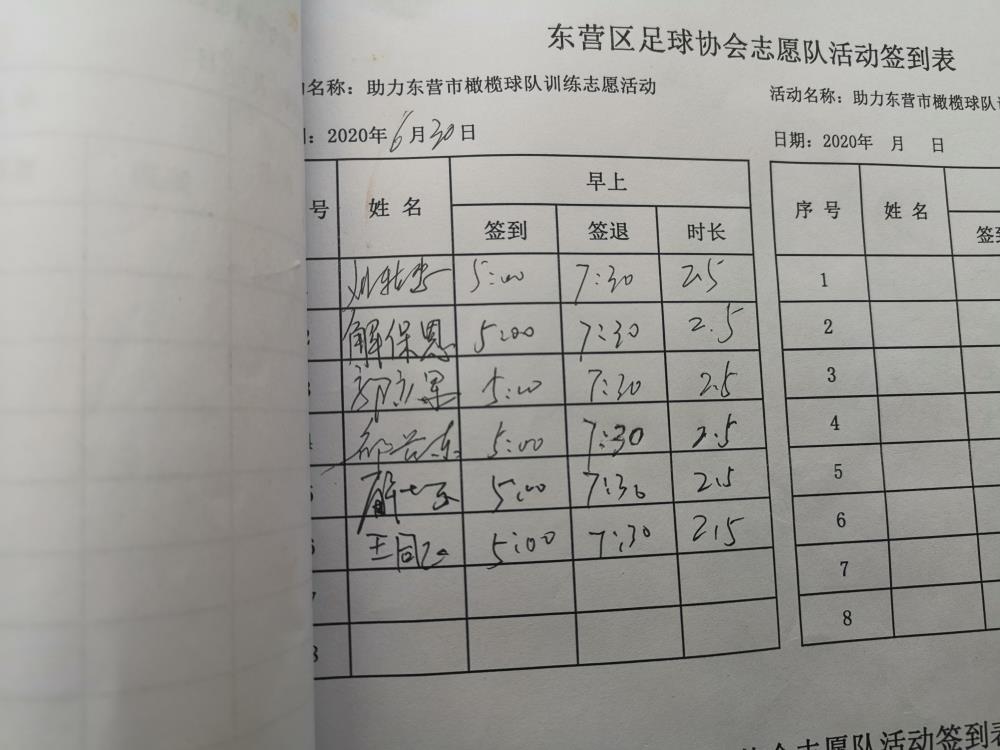 东营区足球协会志愿队活动签到表
名称：助力东营市橄榄球队训练志愿活动
：2020年6月30日
号 姓 名 早上
签到 签退 时长
5:00 7:30 2.5
解保恩 5:00 7:30 2.5
5:00 7:30 2.5
5:00 7:30 2.5
5:00 7:30 2.5
王同 5:00 7:30 2.5
活动名称：助力东营市橄榄球队训
日期：2020年 月 日
序 号 姓 名
签到
1
2
3
4
5
6
7
8
会志愿队活动签到表